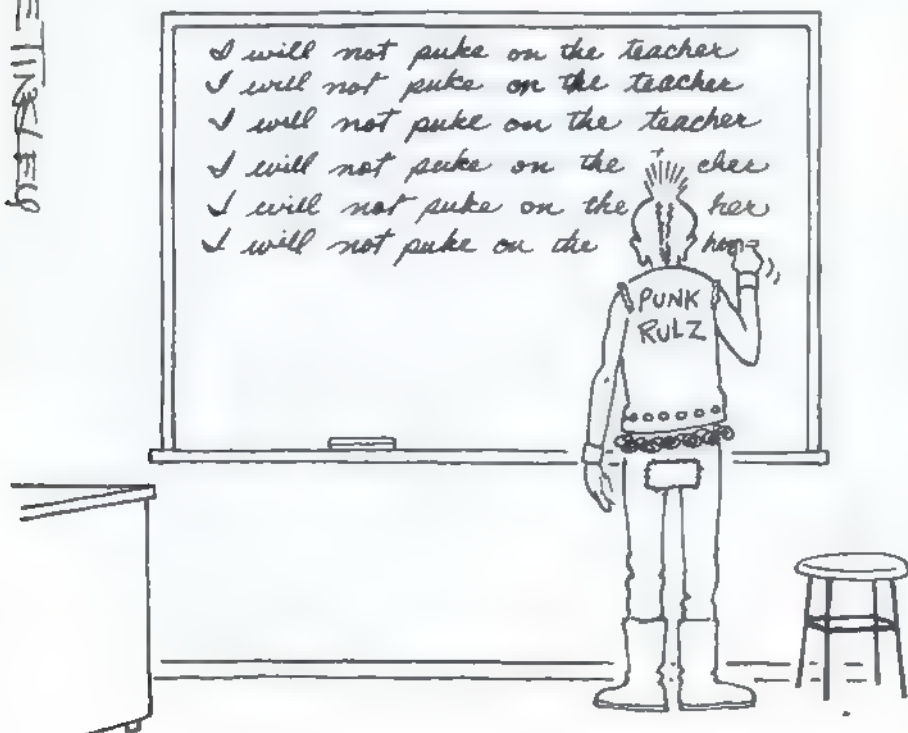 I will not puke on the teacher
I will not puke on the teacher
I will not puke on the teacher
I will not puke on the cher
I will not puke on the her
I will not puke on the
PUNK
RULZ